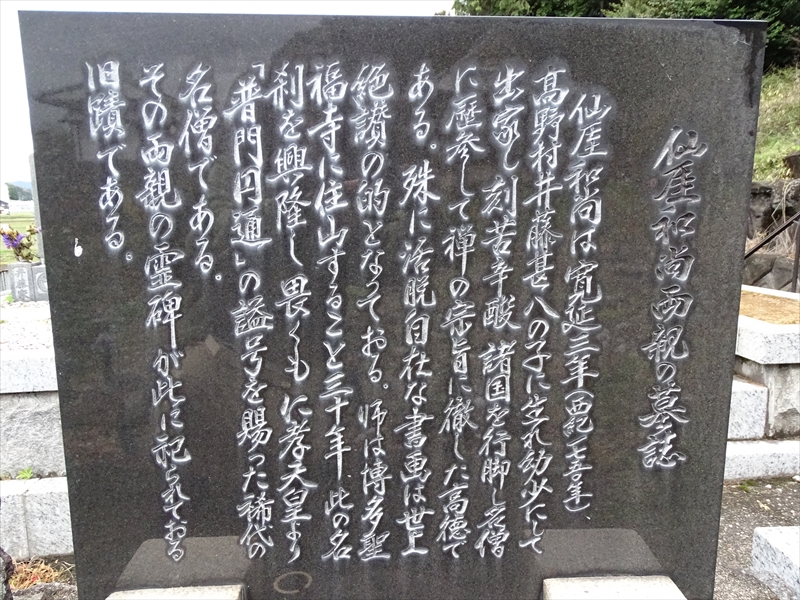 仙厓和尚両親の墓誌
仙厓和尚は寛延三年(西紀一七五〇年)、
高野村井藤甚八の子に生れ幼少にして
出家し刻苦辛酸諸国を行脚し名僧
に歴参して禅の宗旨に徹した高徳で
ある。殊に活脱自在な書画は世上
絶讃の的となっておる。師は博多聖
福寺に住山すること三十年此の名
刹を興隆し畏くも仁孝天皇より
「普門円通」の諡号を賜った稀代の
名僧である。
その両親の霊碑が此に祀られておる
旧蹟である。